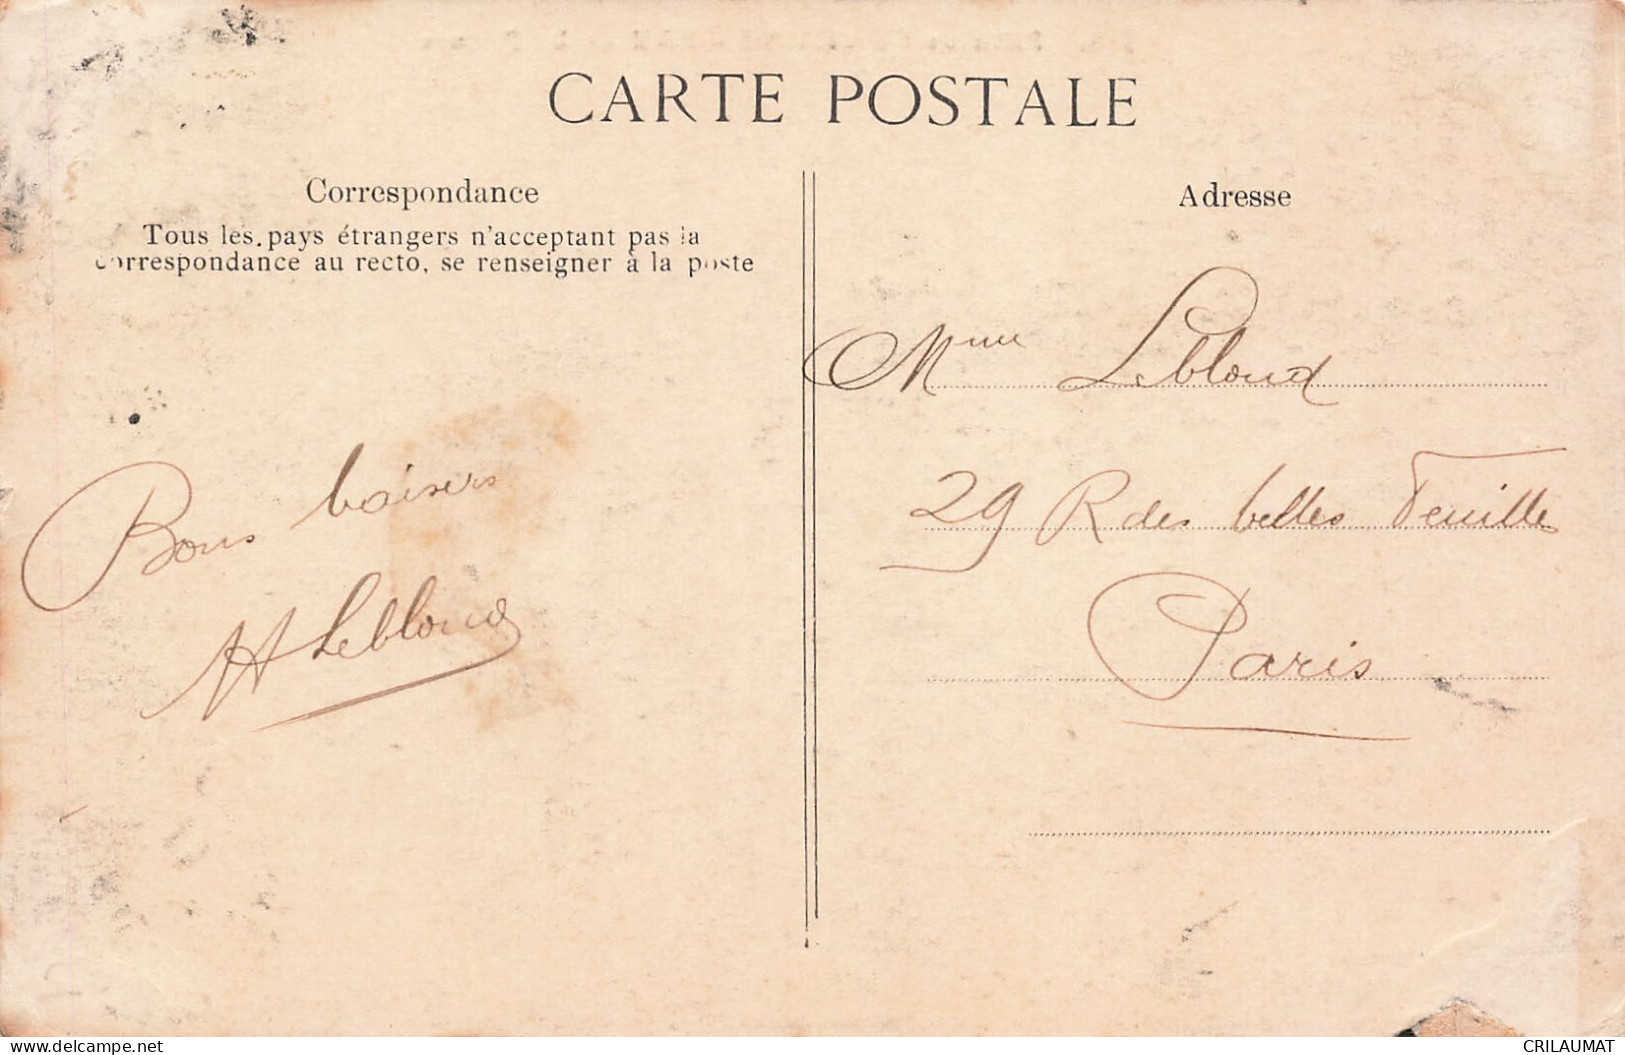 CARTE POSTALE
Correspondance
Tous les pays étrangers n'acceptant pas la
correspondance au recto, se renseigner à la poste
Bons baisers
A Leblond
Adresse
Mme Leblond
29 R des belles Feuilles
Paris
delcampe.net
CRILAUMAT